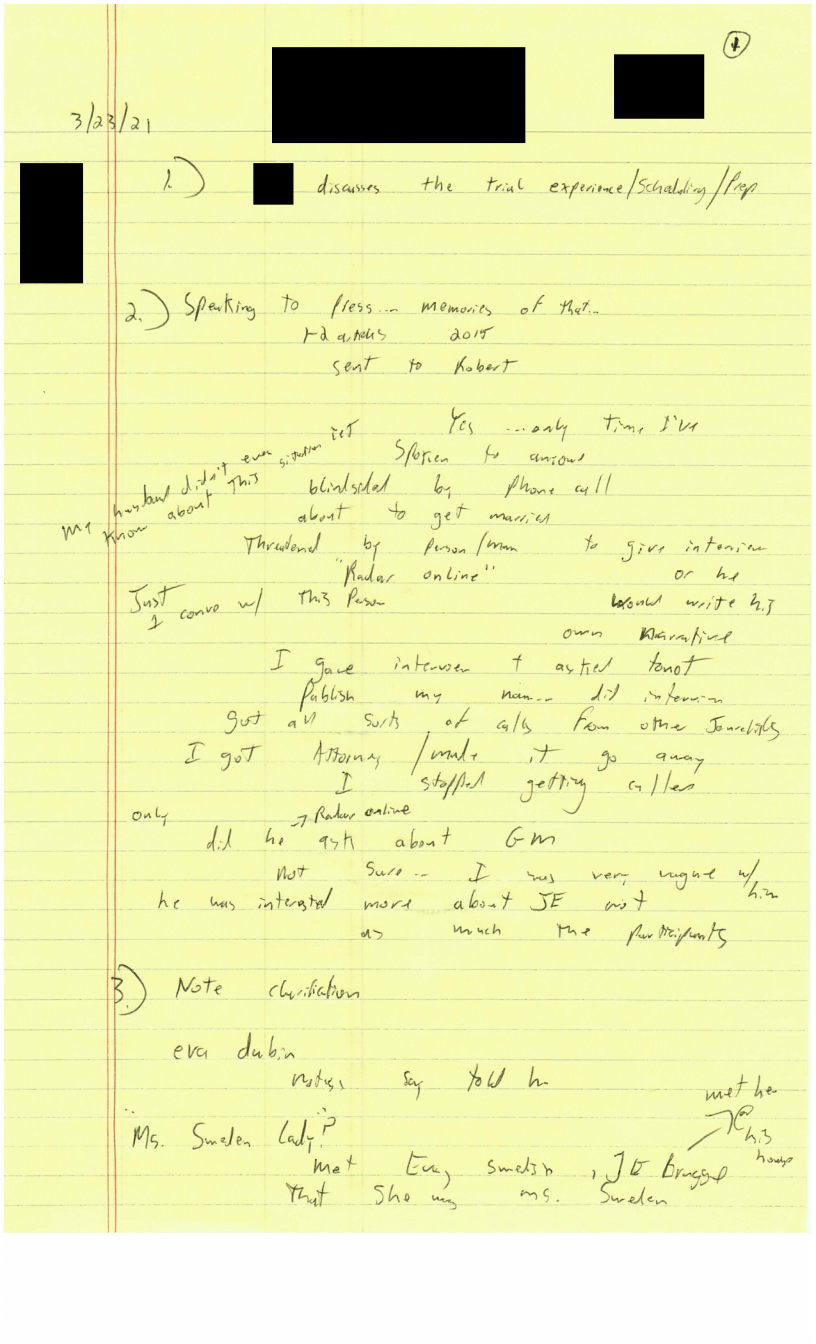 1
3/23/21
1.) discusses the trial experience/Scheduling/Prep
2.) Speaking to press... memories of that...
1-2 articles 2015
sent to Robert
Yes ...only time I've
spoken to anyone
My husband didn't even
know about this situation yet
blindsided by phone call
about to get married
Threatened by person/man to give interview
"Radar online" or he
Just
1 convo w/ this Person
would write his
own Narrative
I gave interview + asked to not
Publish my name... did interview
got all sorts of calls from other Journalists
I got Attorney /made it go away
I stopped getting calls
only → Radar online
did he ask about GM
not sure... I was very vague w/ him
he was interested more about JE not
as much the participants
3.) Note clarification
eva dubin
notes say told
"Ms. Sweden Lady"?
met her
@ his house
met Eva, swedish, JE Bragged
That she was ms. Sweden